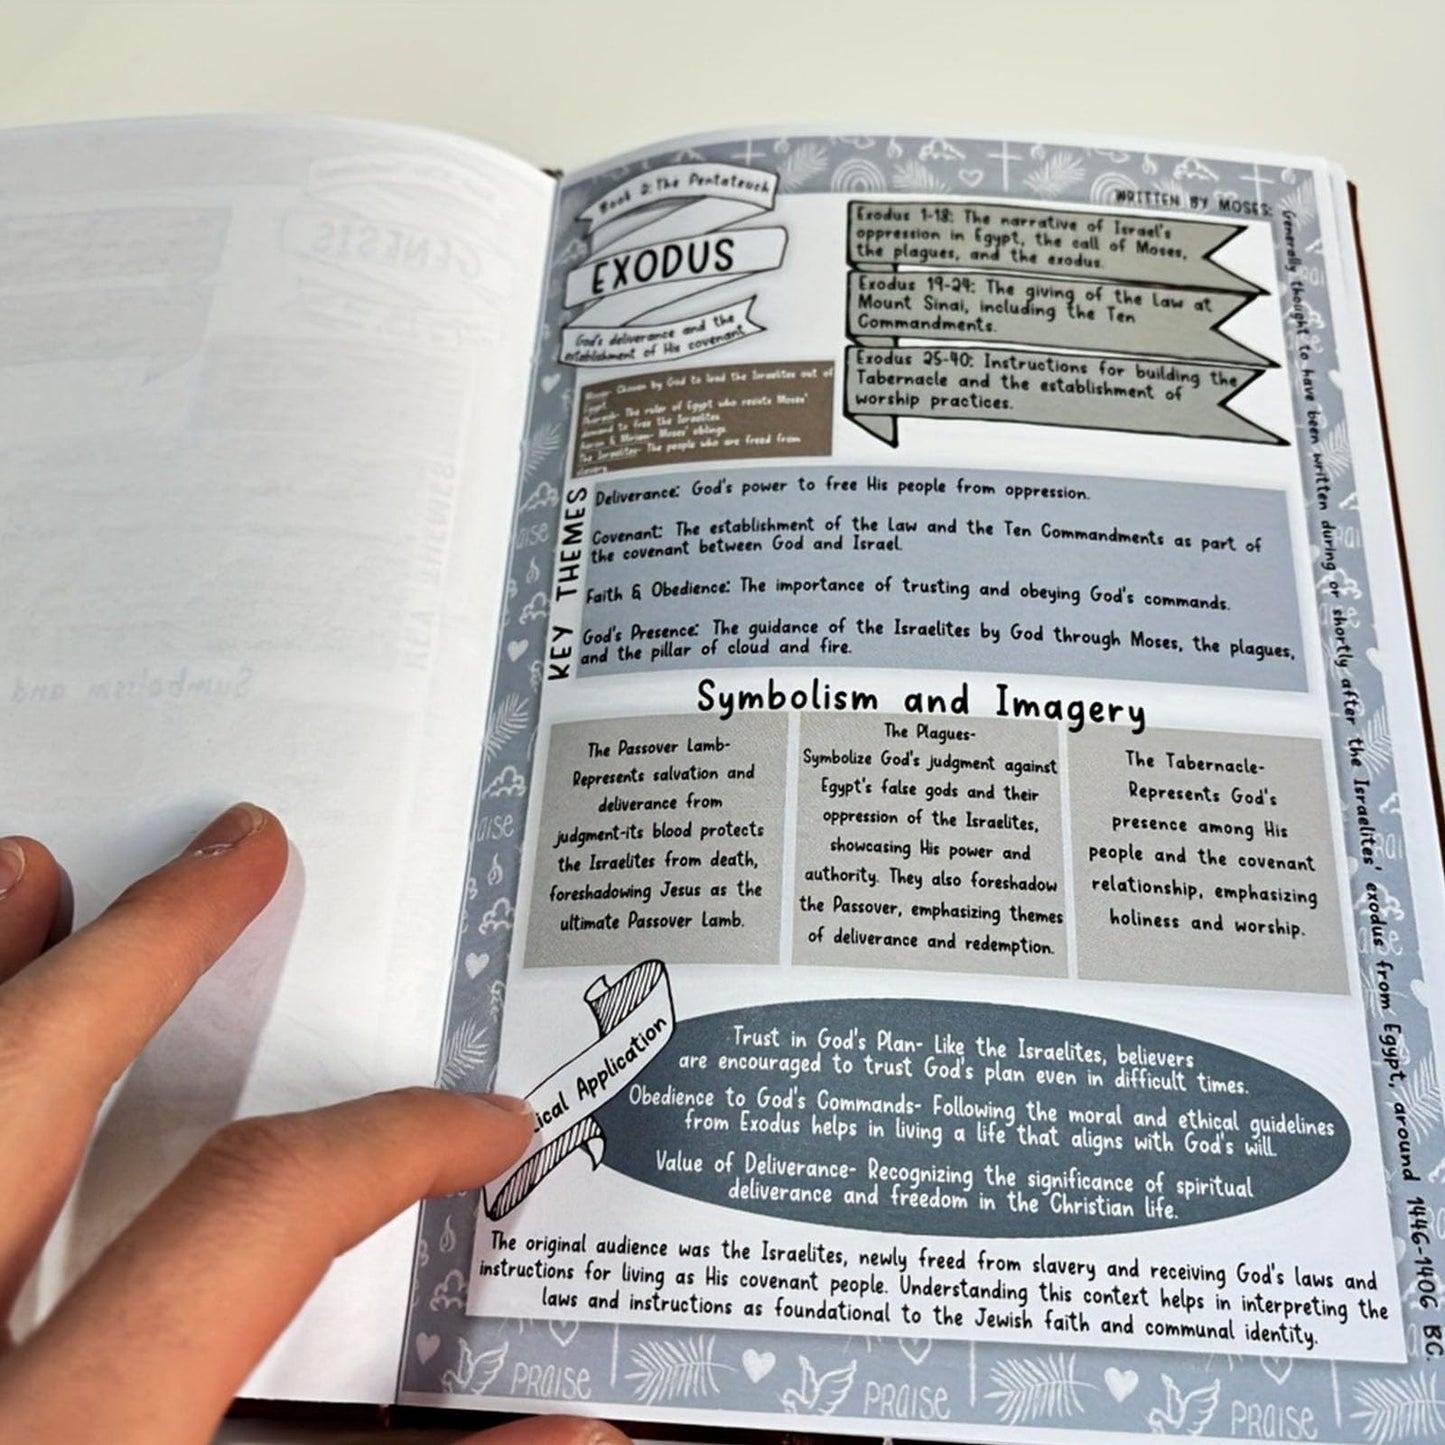 Book 2: The Pentateuch
EXODUS
God's deliverance and the
establishment of His covenant
WRITTEN BY MOSES:
Generally thought to have been written during or shortly after the Israelites' exodus from Egypt, around 1446-1406 BC.
Exodus 1-18: The narrative of Israel's
oppression in Egypt, the call of Moses,
the plagues, and the exodus.
Exodus 19-24: The giving of the Law at
Mount Sinai, including the Ten
Commandments.
Exodus 25-40: Instructions for building the
Tabernacle and the establishment of
worship practices.
Moses- Chosen by God to lead the Israelites out of
Egypt
Pharaoh- The ruler of Egypt who resists Moses'
demand to free the Israelites
Aaron & Miriam- Moses' siblings
The Israelites- The people who are freed from
slavery
KEY THEMES
Deliverance: God's power to free His people from oppression.
Covenant: The establishment of the Law and the Ten Commandments as part of
the covenant between God and Israel.
Faith & Obedience: The importance of trusting and obeying God's commands.
God's Presence: The guidance of the Israelites by God through Moses, the plagues,
and the pillar of cloud and fire.
Symbolism and Imagery
The Passover Lamb-
Represents salvation and
deliverance from
judgment-its blood protects
the Israelites from death,
foreshadowing Jesus as the
ultimate Passover Lamb.
The Plagues-
Symbolize God's judgment against
Egypt's false gods and their
oppression of the Israelites,
showcasing His power and
authority. They also foreshadow
the Passover, emphasizing themes
of deliverance and redemption.
The Tabernacle-
Represents God's
presence among His
people and the covenant
relationship, emphasizing
holiness and worship.
ical Application
Trust in God's Plan- Like the Israelites, believers
are encouraged to trust God's plan even in difficult times.
Obedience to God's Commands- Following the moral and ethical guidelines
from Exodus helps in living a life that aligns with God's will.
Value of Deliverance- Recognizing the significance of spiritual
deliverance and freedom in the Christian life.
The original audience was the Israelites, newly freed from slavery and receiving God's laws and
instructions for living as His covenant people. Understanding this context helps in interpreting the
laws and instructions as foundational to the Jewish faith and communal identity.
PRAISE
PRAISE
PRAISE
GENESIS
KEY THEMES
Symbolism and